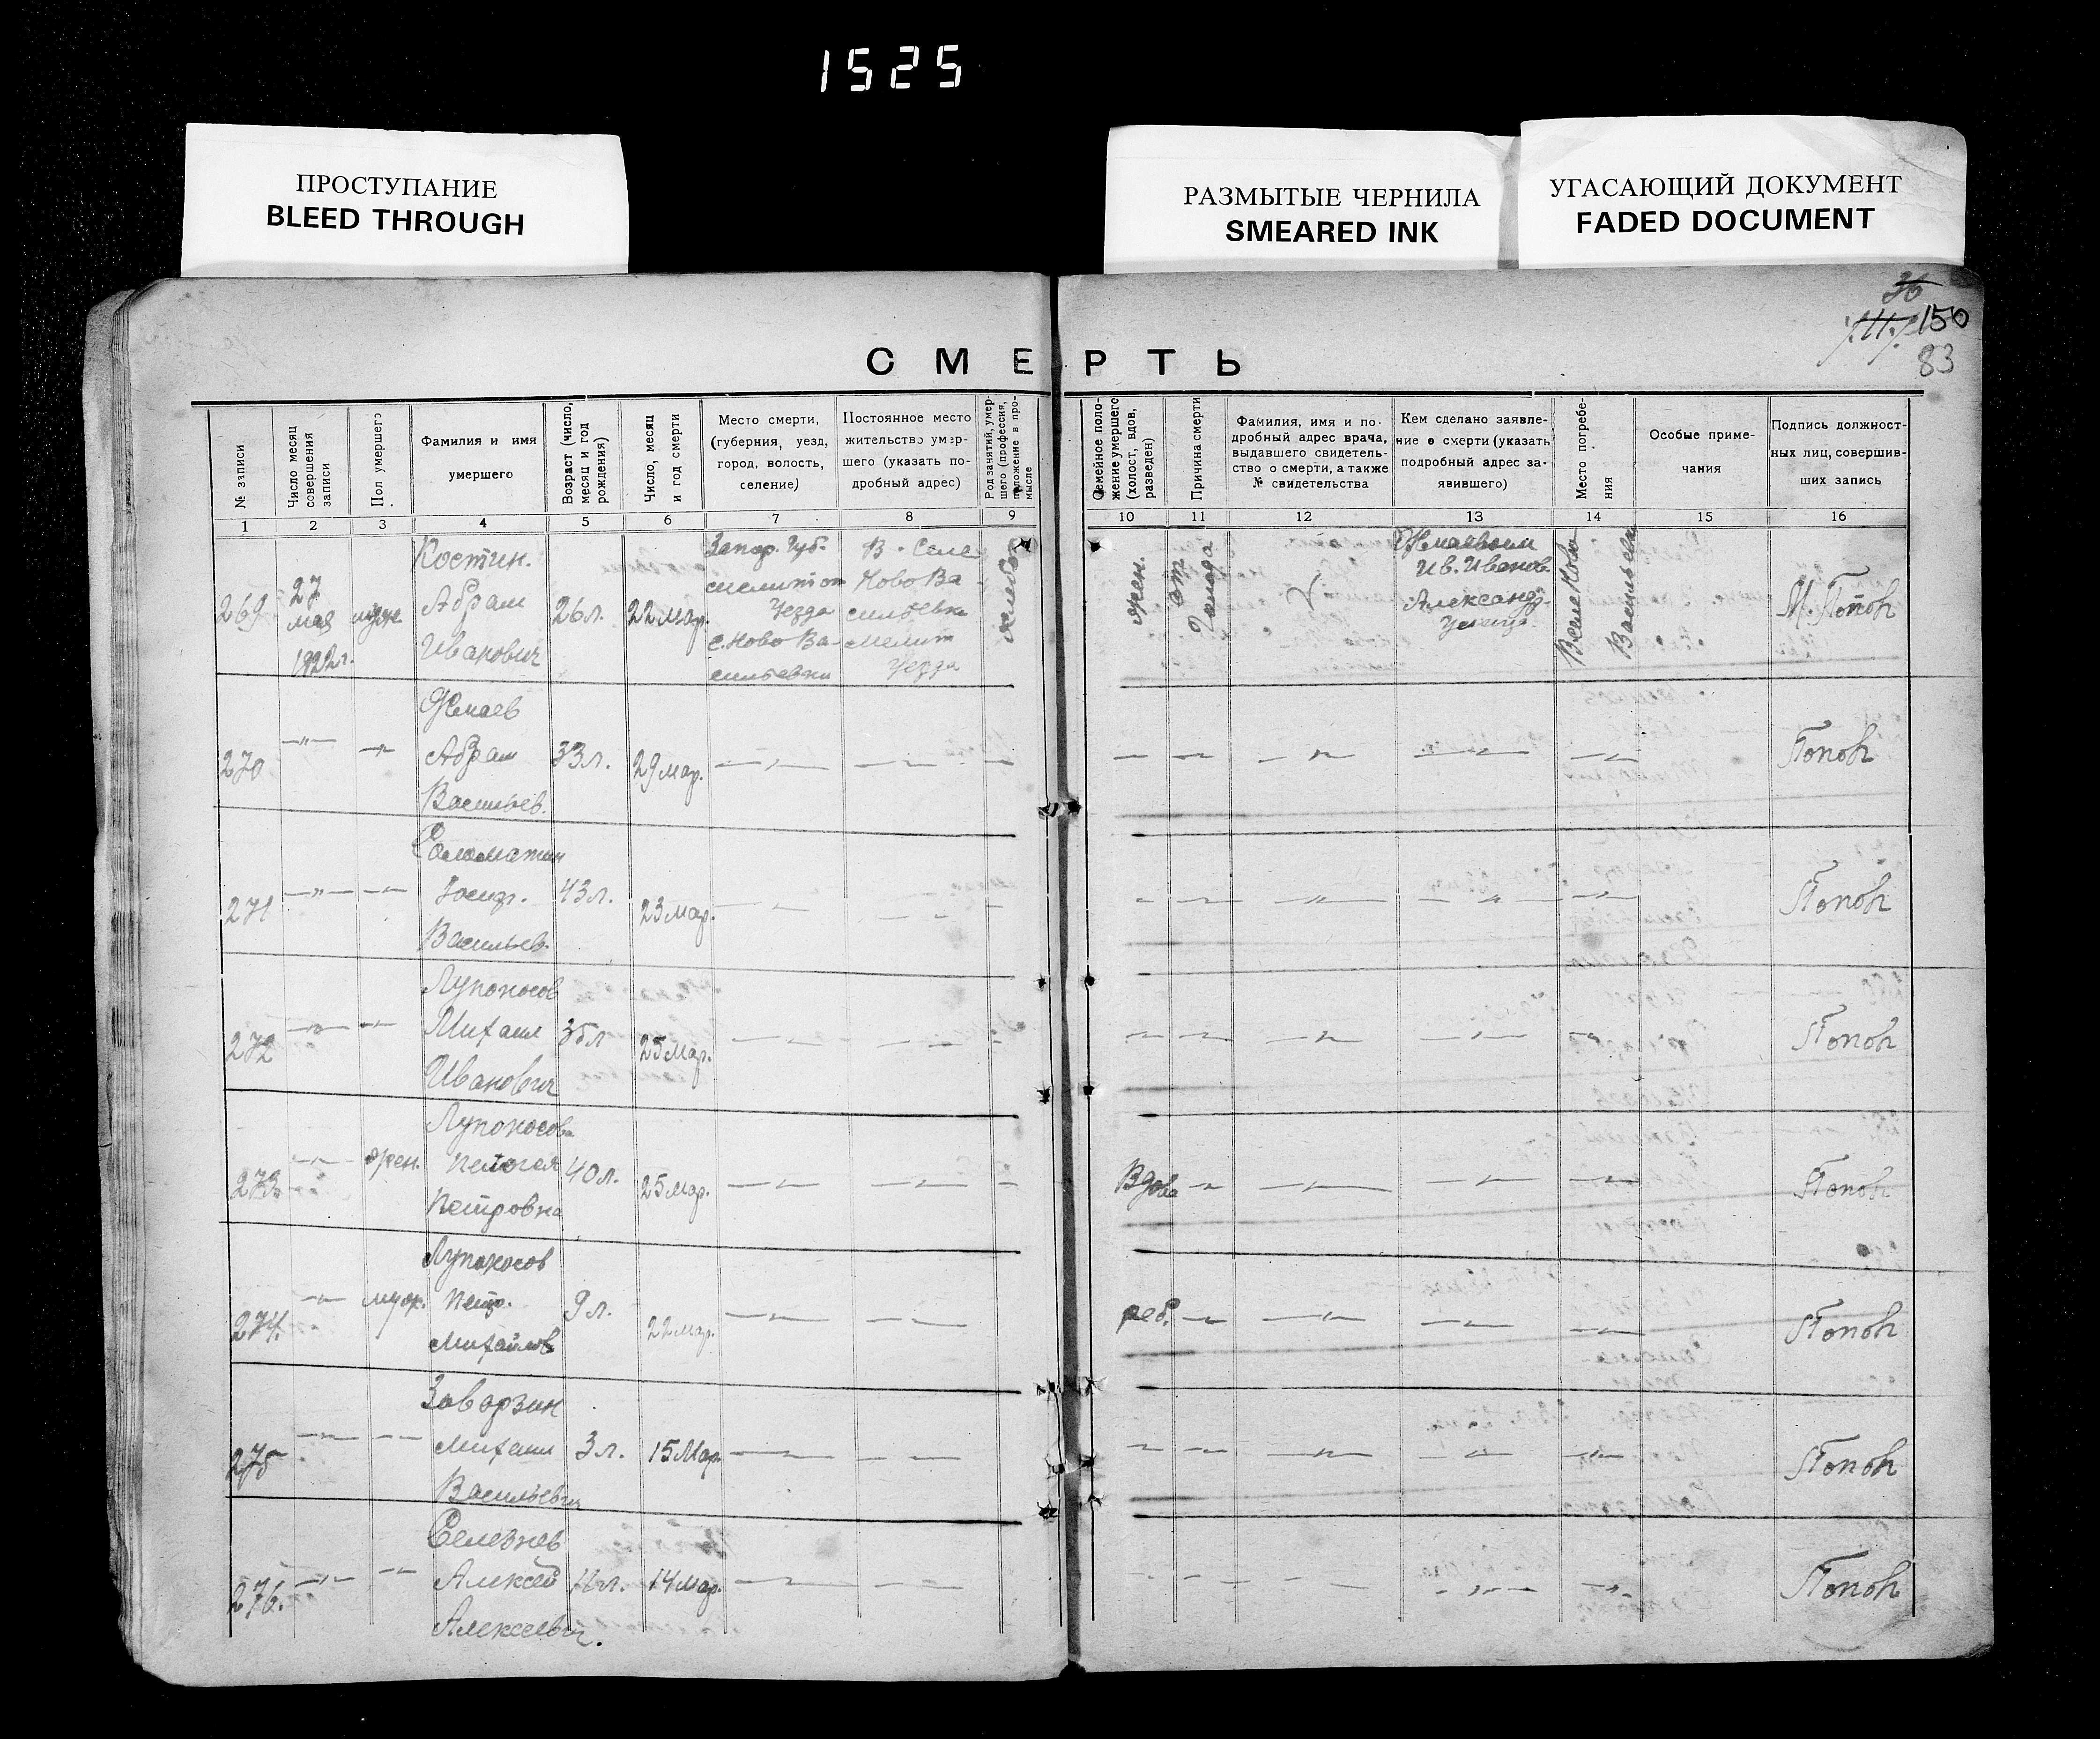 1525
ПРОСТУПАНИЕ
BLEED THROUGH
РАЗМЫТЫЕ ЧЕРНИЛА
SMEARED INK
УГАСАЮЩИЙ ДОКУМЕНТ
FADED DOCUMENT
36
150
83
СМЕРТЬ
№ записи
Число месяц совершения записи
Пол умершего
Фамилия и имя
умершего
Возраст (число, месяц и год рождения)
Число, месяц и год смерти
Место смерти,
(губерния, уезд,
город, волость,
селение)
Постоянное место
жительство умер-
шего (указать по-
дробный адрес)
Род занятий, умер-
шего (профессия,
положение в про-
мысле
Семейное поло-
жение умершего
(холост, вдов,
разведен)
Причина смерти
Фамилия, имя и по-
дробный адрес врача,
выдавшего свидетель-
ство о смерти, а также
№ свидетельства
Кем сделано заявле-
ние о смерти (указать
подробный адрес за-
явившего)
Место погребе-
ния
Особые приме-
чания
Подпись должност-
ных лиц, совершив-
ших запись
1 2 3 4 5 6 7 8 9 10 11 12 13 14 15 16
269
27
мая
1922г.
муж
Костин.
Абрам
Иванович
26л.
22 мар.
Запор. Губ.
мелитоп
Уезда
с. Ново Ва-
сильевки
В. Села
Ново Ва-
сильевка
мелит
Уезда
хлебор
жен.
от
Голода
Ив. Иванов
Александ.
Улица.
В селе Ново
Васильевка
М. Попов
270
—"—
—"—
Жмаев
Абрам
Васильев.
33л.
29 мар.
Попов
271
—"—
—"—
Саломатин
Иосиф.
Васильев.
43л.
23 мар.
Попов
272
—"—
—"—
Лупоносов
Михаил
Иванович
35л
25 мар.
Попов
273.
—"—
жен.
Лупоносова
Пелагея
Петровна
40л.
25 мар.
Вдова
Попов
274.
—"—
муж.
Лупоносов
Петр.
Михайлов
9л.
22 мар.
реб.
Попов
275
—"—
—"—
Заворзин
Михаил
Васильевич
3л.
15 мар.
Попов
276.
—"—
—"—
Селезнев
Алексей
Алексеевич.
11л.
14 мар.
Попов